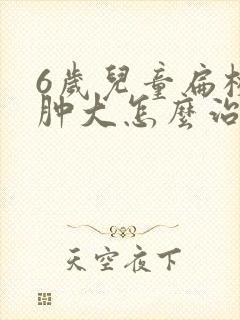 6歲兒童扁桃
肿大怎麼治
天空夜下